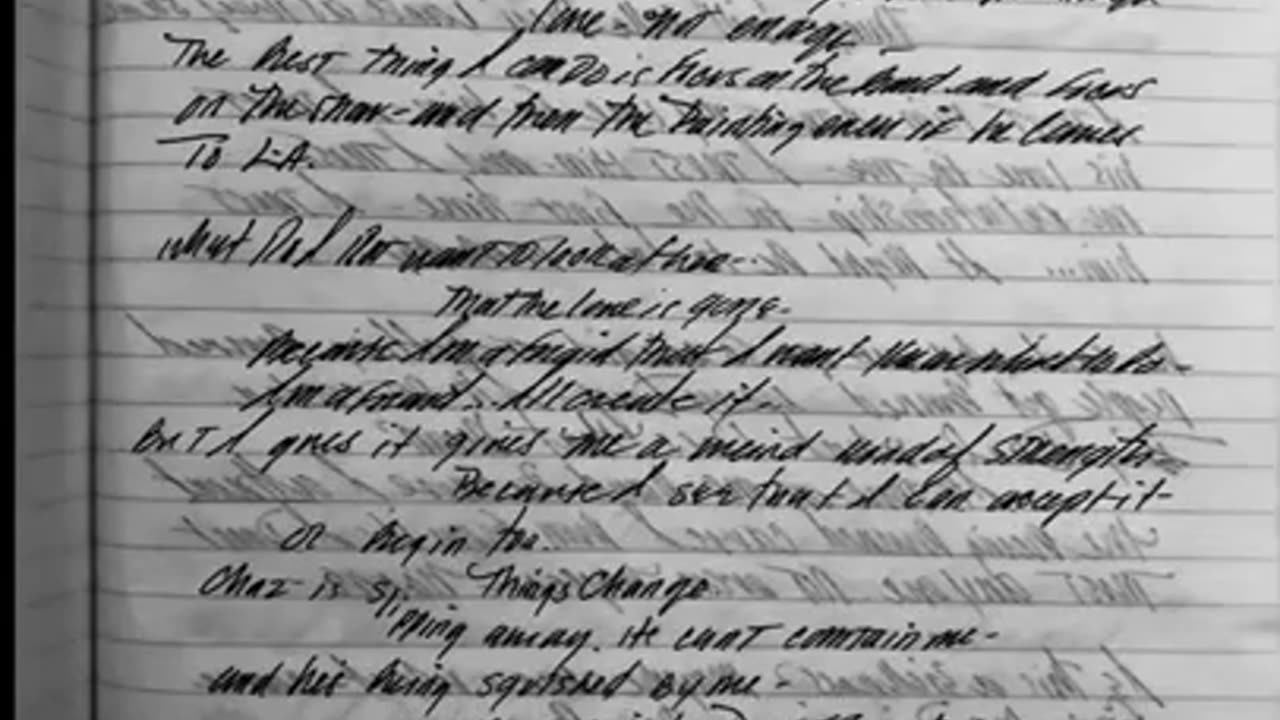 love - not energy
The Best thing I can Do is Focus on the Band and Focus
on the show - and then the Painting even if he comes
To L.A.
What Do I Not want to look at here...
That the love is gone -
Because I'm afraid that I want know what to Do -
I'm afraid... I'll create it -
But I guess it gives me a weird kind of strength -
Because I see that I can accept it -
or begin to...
Things Change
Chaz is slipping away. He can't contain me -
and he's being squished by me -